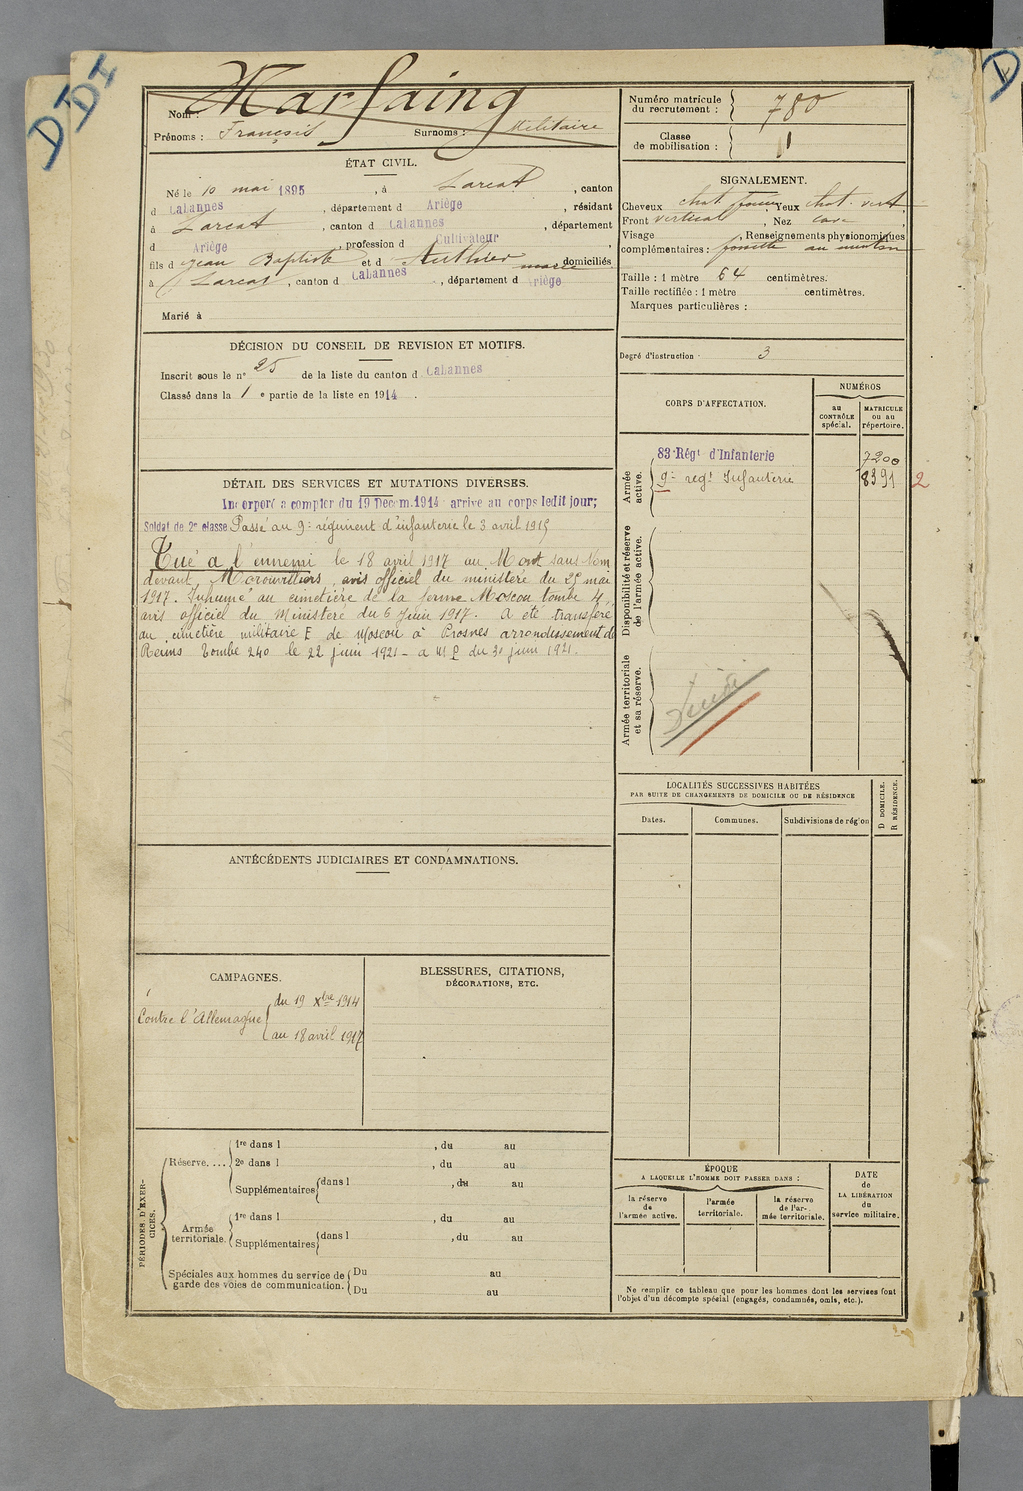 DDI
D
Nom : Marfaing
Prénoms : François Surnoms : Militaire
Numéro matricule
du recrutement : 780
Classe
de mobilisation :
ÉTAT CIVIL.
Né le 10 mai 1895, à Larcat, canton
d Cabannes, département d Ariège, résidant
à Larcat, canton d Cabannes, département
d Ariège, profession d Cultivateur,
fils d Jean Baptiste et d Authier marie domiciliés
à Larcat, canton d Cabannes, département d Ariège
Marié à
SIGNALEMENT.
Cheveux chat foncé, Yeux chat. vert,
Front vertical, Nez cave
Visage , Renseignements physionomiques
complémentaires : fossette au menton
Taille : 1 mètre 64 centimètres.
Taille rectifiée : 1 mètre centimètres.
Marques particulières :
DÉCISION DU CONSEIL DE REVISION ET MOTIFS.
Inscrit sous le n° 25 de la liste du canton d Cabannes
Classé dans la 1e partie de la liste en 1914.
Degré d'instruction 3
CORPS D'AFFECTATION.
NUMÉROS
au CONTRÔLE spécial.
MATRICULE ou au répertoire.
Armée active.
83e Régt d'Infanterie 7200
9e regt Infanterie 8391 2
Disponibilité et réserve de l'armée active.
Armée territoriale et sa réserve.
DÉTAIL DES SERVICES ET MUTATIONS DIVERSES.
Incorporé a compter du 19 Decem.1914 arrive au corps ledit jour;
Soldat de 2e classe Passé au 9e régiment d'infanterie le 3 avril 1915
Tué à l'ennemi le 18 avril 1917 au Mont sans Nom
devant Moronvilliers, avis officiel du ministère du 25 mai
1917. Inhumé au cimetière de la ferme Moscou tombe 4,
avis officiel du Ministère du 6 Juin 1917. A été transféré
au cimetière militaire E de Moscou à Prosnes arrondissement de
Reims tombe 240 le 22 juin 1921 - a M P du 30 juin 1921.
LOCALITÉS SUCCESSIVES HABITÉES
PAR SUITE DE CHANGEMENTS DE DOMICILE OU DE RÉSIDENCE
Dates. Communes. Subdivisions de région
D DOMICILE.
R RÉSIDENCE.
ANTÉCÉDENTS JUDICIAIRES ET CONDAMNATIONS.
CAMPAGNES.
Contre l'Allemagne
du 19 Xbre 1914
au 18 avril 1917
BLESSURES, CITATIONS,
DÉCORATIONS, ETC.
PÉRIODES D'EXERCICES.
Réserve....
1re dans l , du au
2e dans l , du au
Supplémentaires dans l , du au
Armée territoriale.
1re dans l , du au
Supplémentaires dans l , du au
Spéciales aux hommes du service de
garde des voies de communication.
Du au
Du au
ÉPOQUE
A LAQUELLE L'HOMME DOIT PASSER DANS :
la réserve de l'armée active.
l'armée territoriale.
la réserve de l'armée territoriale.
DATE
de
LA LIBÉRATION
du
service militaire.
Ne remplir ce tableau que pour les hommes dont les services font
l'objet d'un décompte spécial (engagés, condamnés, omis, etc.).